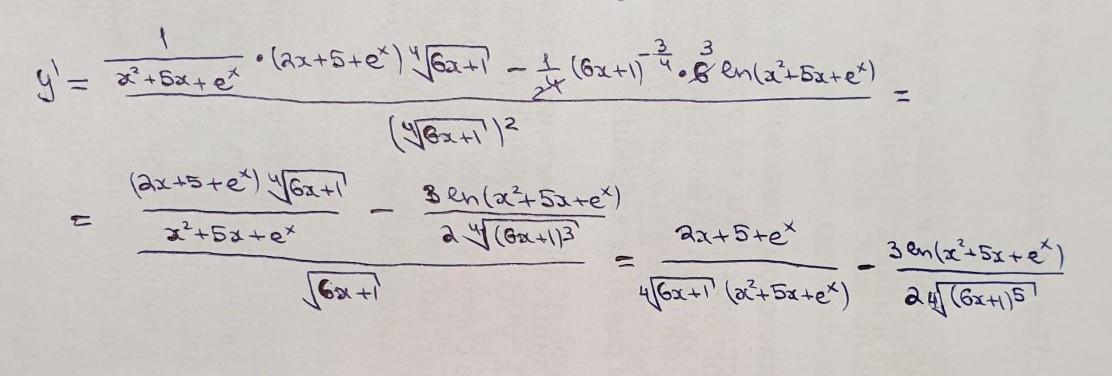 y' = \frac{\frac{1}{x^2+5x+e^x} \cdot (2x+5+e^x) \sqrt[4]{6x+1} - \frac{1}{\cancel{4}_2} (6x+1)^{-\frac{3}{4}} \cdot \cancel{6}^3 \ln(x^2+5x+e^x)}{(\sqrt[4]{6x+1})^2} =
= \frac{\frac{(2x+5+e^x) \sqrt[4]{6x+1}}{x^2+5x+e^x} - \frac{3 \ln(x^2+5x+e^x)}{2 \sqrt[4]{(6x+1)^3}}}{\sqrt{6x+1}} = \frac{2x+5+e^x}{\sqrt[4]{6x+1} (x^2+5x+e^x)} - \frac{3 \ln(x^2+5x+e^x)}{2 \sqrt[4]{(6x+1)^5}}